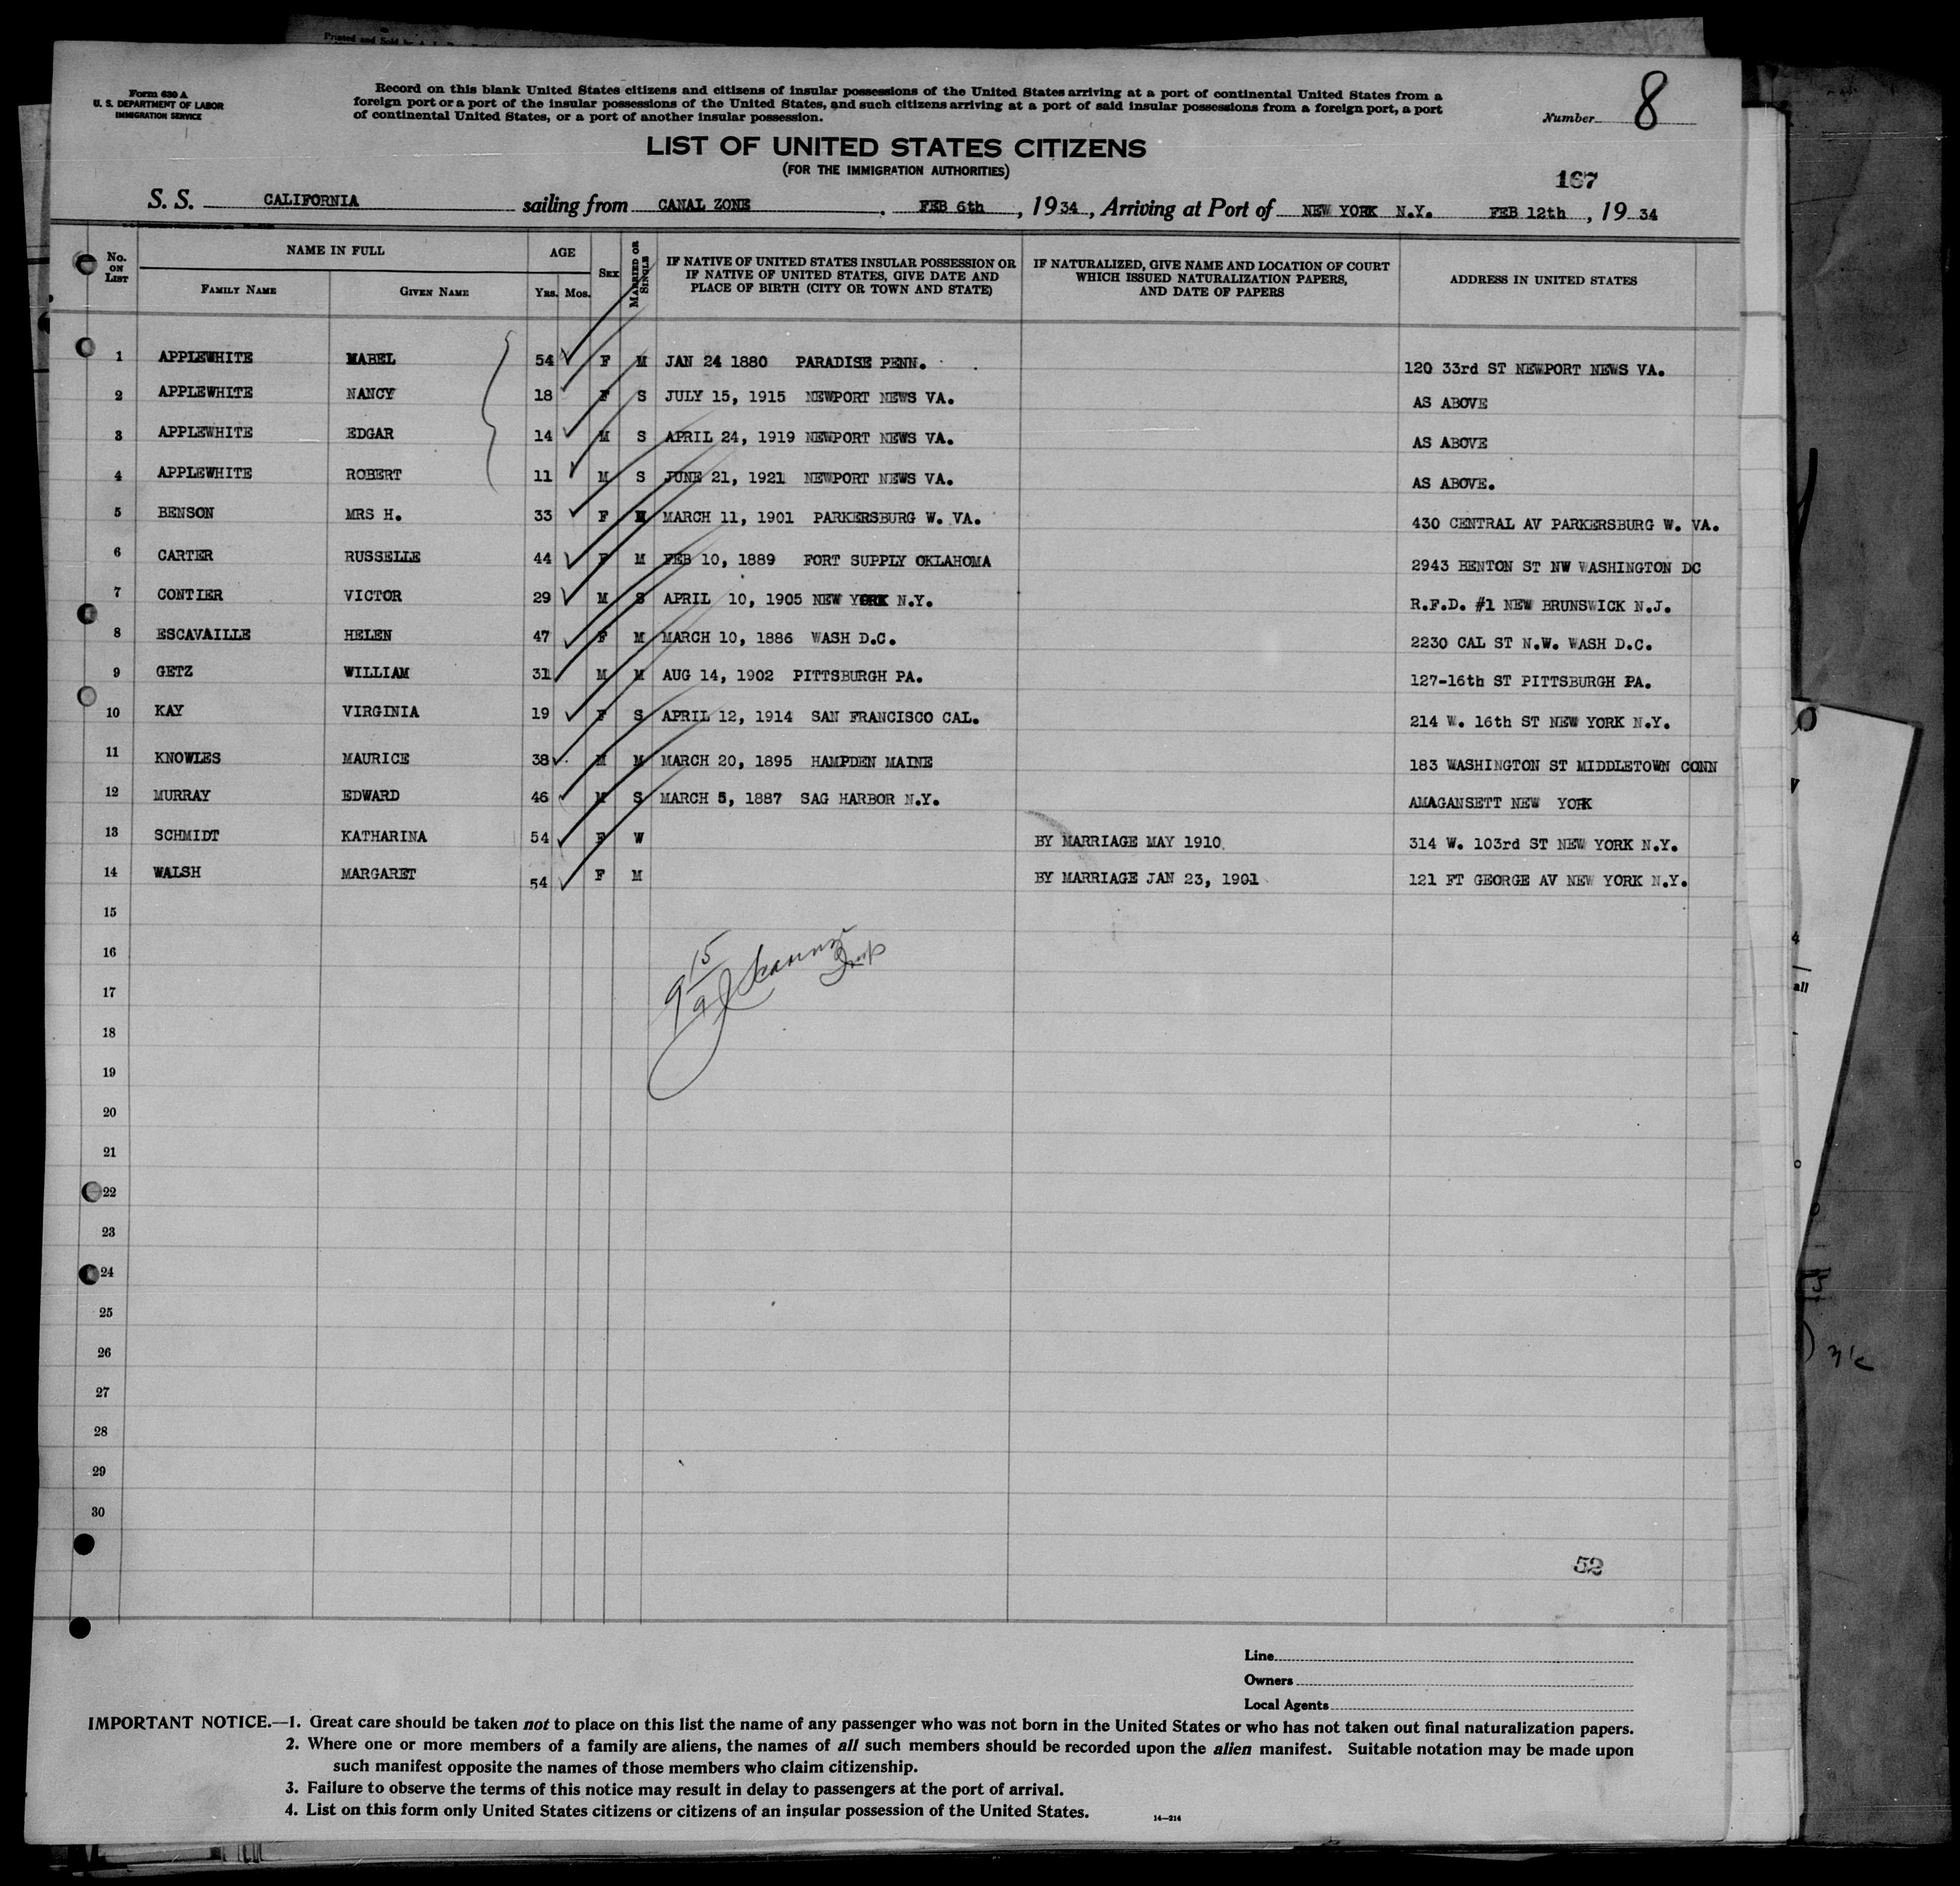 Form 630 A
U. S. DEPARTMENT OF LABOR
IMMIGRATION SERVICE
Record on this blank United States citizens and citizens of insular possessions of the United States arriving at a port of continental United States from a
foreign port or a port of the insular possessions of the United States, and such citizens arriving at a port of said insular possessions from a foreign port, a port
of continental United States, or a port of another insular possession.
Number 8
LIST OF UNITED STATES CITIZENS
(FOR THE IMMIGRATION AUTHORITIES)
167
S. S. CALIFORNIA sailing from CANAL ZONE, FEB 6th, 1934, Arriving at Port of NEW YORK N.Y. FEB 12th, 19 34
No. ON LIST NAME IN FULL FAMILY NAME GIVEN NAME AGE YRS. MOS. SEX MARRIED OR SINGLE IF NATIVE OF UNITED STATES INSULAR POSSESSION OR IF NATIVE OF UNITED STATES, GIVE DATE AND PLACE OF BIRTH (CITY OR TOWN AND STATE) IF NATURALIZED, GIVE NAME AND LOCATION OF COURT WHICH ISSUED NATURALIZATION PAPERS, AND DATE OF PAPERS ADDRESS IN UNITED STATES
1 APPLEWHITE MABEL 54 F M JAN 24 1880 PARADISE PENN. 120 33rd ST NEWPORT NEWS VA.
2 APPLEWHITE NANCY 18 F S JULY 15, 1915 NEWPORT NEWS VA. AS ABOVE
3 APPLEWHITE EDGAR 14 M S APRIL 24, 1919 NEWPORT NEWS VA. AS ABOVE
4 APPLEWHITE ROBERT 11 M S JUNE 21, 1921 NEWPORT NEWS VA. AS ABOVE.
5 BENSON MRS H. 33 F M MARCH 11, 1901 PARKERSBURG W. VA. 430 CENTRAL AV PARKERSBURG W. VA.
6 CARTER RUSSELLE 44 F M FEB 10, 1889 FORT SUPPLY OKLAHOMA 2943 BENTON ST NW WASHINGTON DC
7 CONTIER VICTOR 29 M S APRIL 10, 1905 NEW YORK N.Y. R.F.D. #1 NEW BRUNSWICK N.J.
8 ESCAVAILLE HELEN 47 F M MARCH 10, 1886 WASH D.C. 2230 CAL ST N.W. WASH D.C.
9 GETZ WILLIAM 31 M M AUG 14, 1902 PITTSBURGH PA. 127-16th ST PITTSBURGH PA.
10 KAY VIRGINIA 19 F S APRIL 12, 1914 SAN FRANCISCO CAL. 214 W. 16th ST NEW YORK N.Y.
11 KNOWLES MAURICE 38 M M MARCH 20, 1895 HAMPDEN MAINE 183 WASHINGTON ST MIDDLETOWN CONN
12 MURRAY EDWARD 46 M S MARCH 5, 1887 SAG HARBOR N.Y. AMAGANSETT NEW YORK
13 SCHMIDT KATHARINA 54 F W BY MARRIAGE MAY 1910 314 W. 103rd ST NEW YORK N.Y.
14 WALSH MARGARET 54 F M BY MARRIAGE JAN 23, 1901 121 FT GEORGE AV NEW YORK N.Y.
15
16
17
18
19
20
21
22
23
24
25
26
27
28
29
30
52
Line
Owners
Local Agents
IMPORTANT NOTICE.—1. Great care should be taken not to place on this list the name of any passenger who was not born in the United States or who has not taken out final naturalization papers.
2. Where one or more members of a family are aliens, the names of all such members should be recorded upon the alien manifest. Suitable notation may be made upon
such manifest opposite the names of those members who claim citizenship.
3. Failure to observe the terms of this notice may result in delay to passengers at the port of arrival.
4. List on this form only United States citizens or citizens of an insular possession of the United States.
14—214